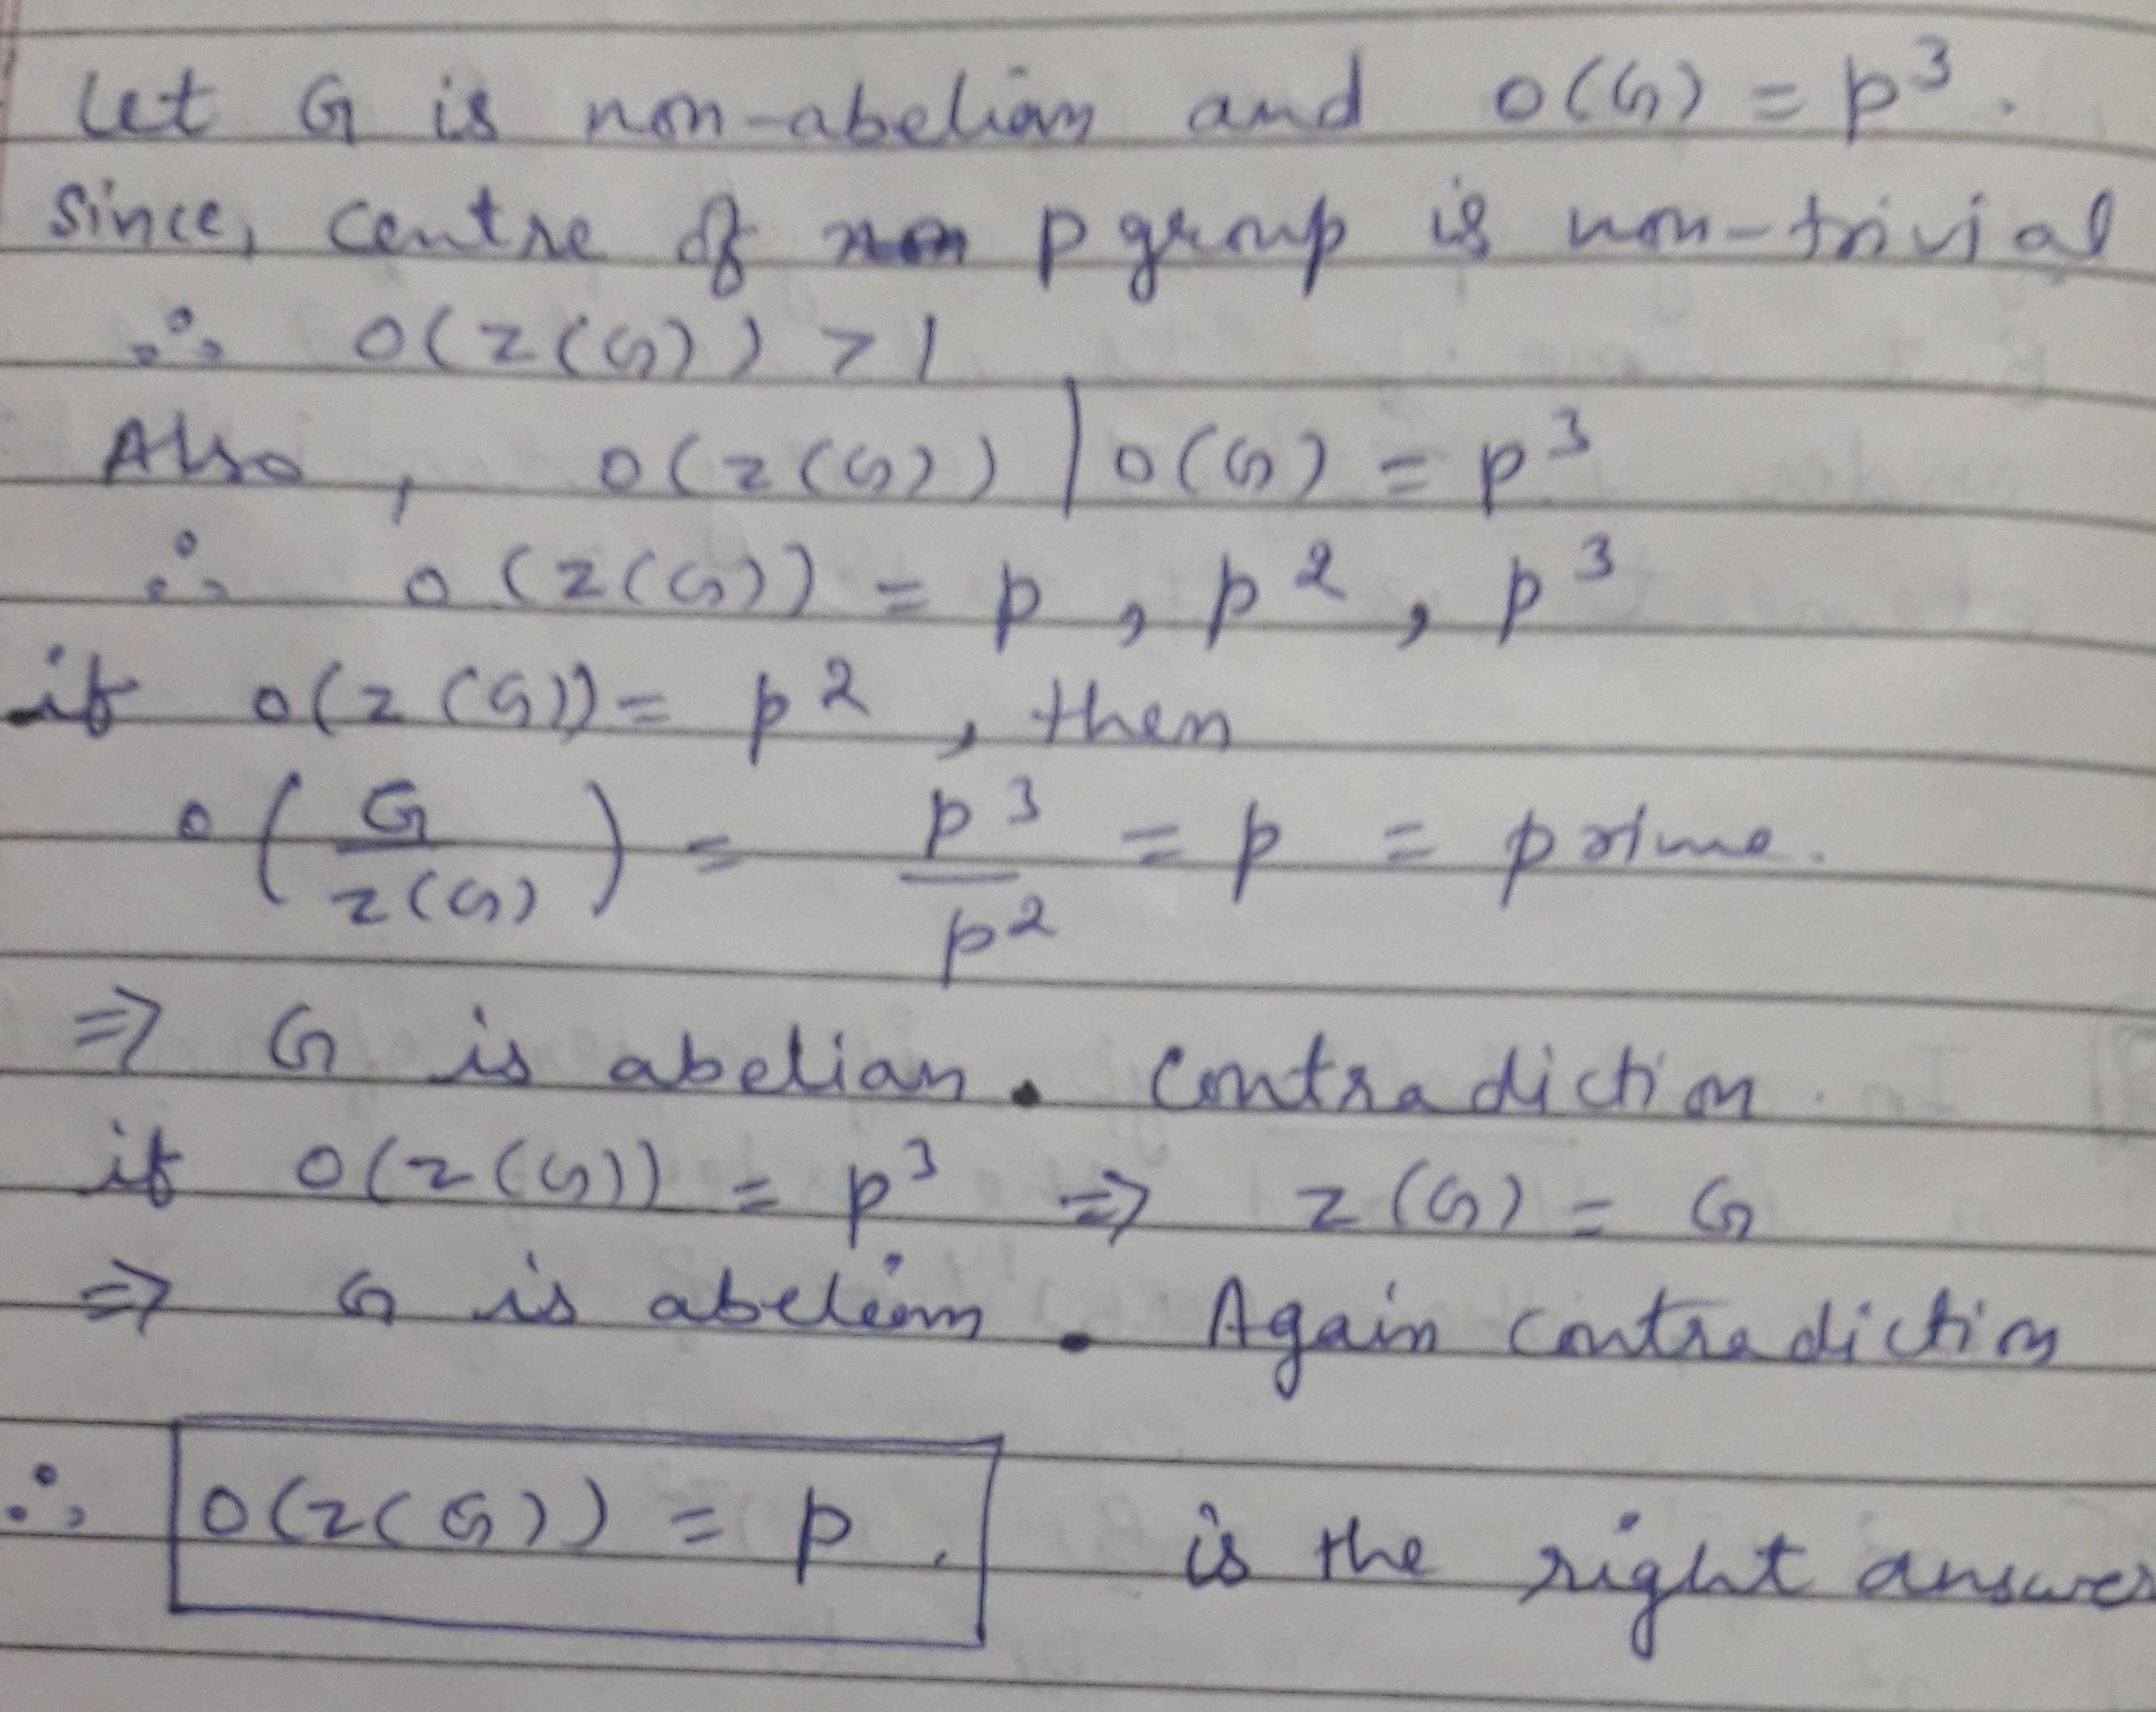 Let G is non-abelian and O(G) = p³.
Since, centre of p group is non-trivial
∴ O(Z(G)) > 1
Also, O(Z(G)) | O(G) = p³
∴ O(Z(G)) = p, p², p³
if O(Z(G)) = p², then
O(G/Z(G)) = p³/p² = p = prime.
⇒ G is abelian. Contradiction.
if O(Z(G)) = p³ ⇒ Z(G) = G
⇒ G is abelian. Again contradiction
∴ O(Z(G)) = p. is the right answer